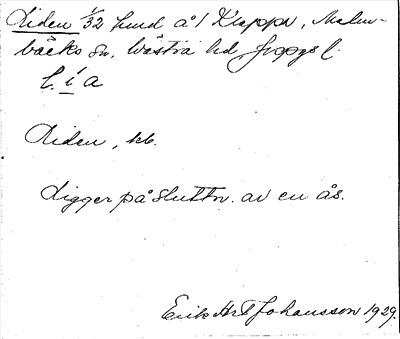 Liden 1/32 hmd å 1 Klappa, Malm-
bäcks sn, Västra hd Jkpgs l.
l. i a
Liden, kb.
Ligger på sluttn. av en ås.
Erik Hrs Johansson 1929.